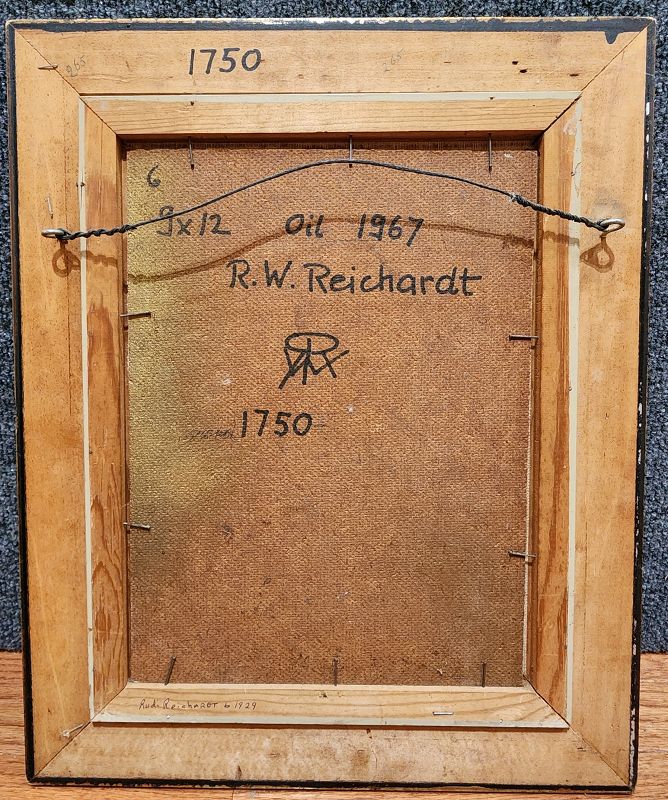 265 1750 265
6
9x12 Oil 1967
R.W. Reichardt
1750
Rudi Reichardt b 1929